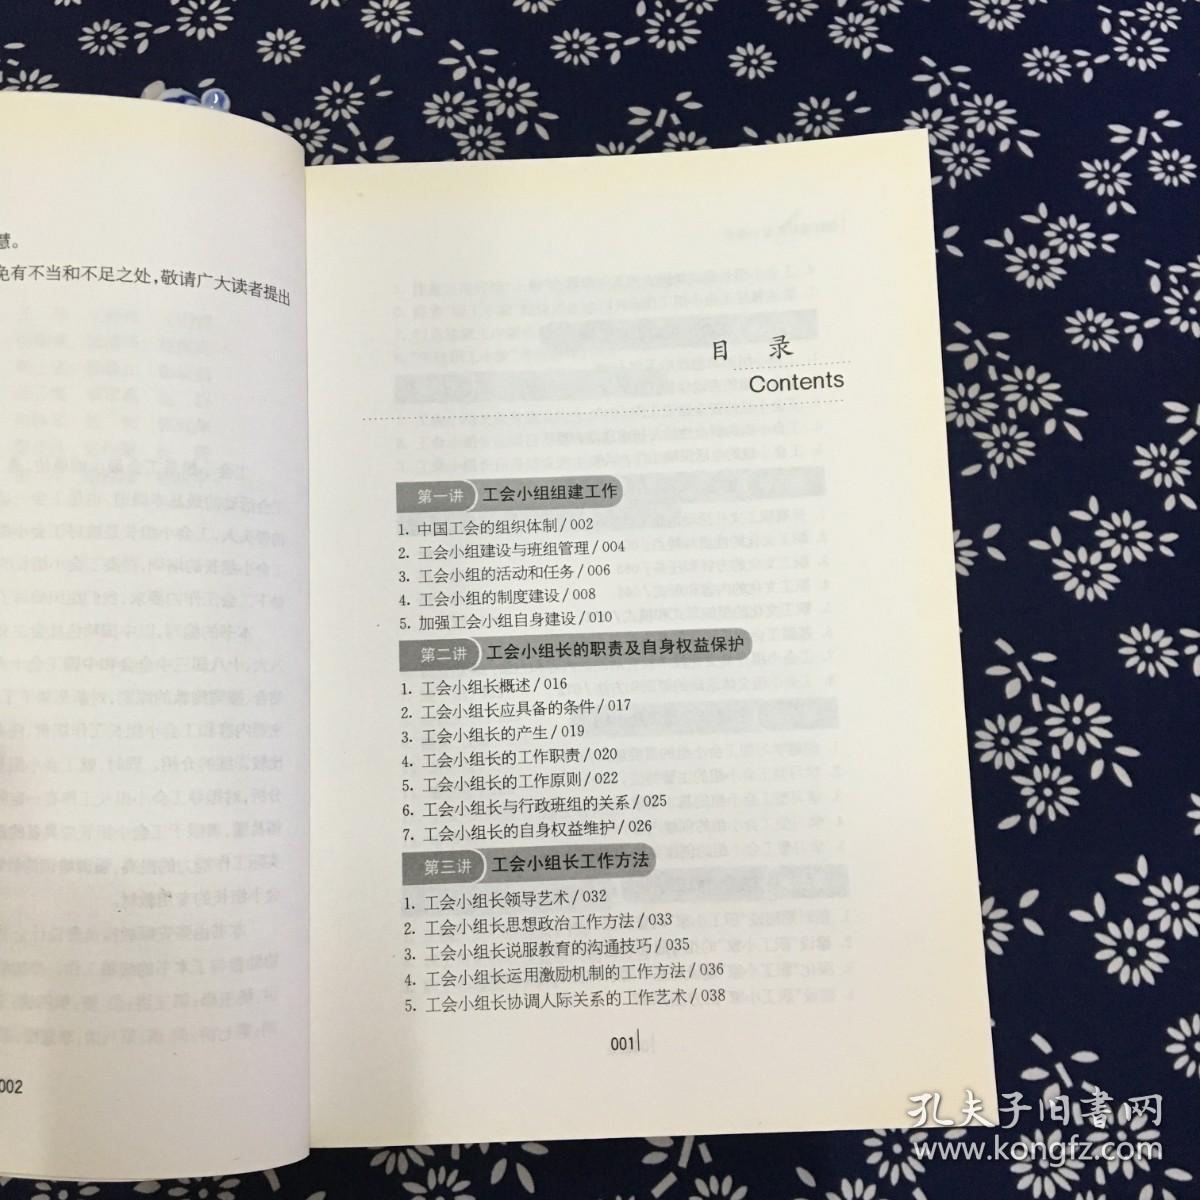 慧。
免有不当和不足之处，敬请广大读者提出
002
目 录
Contents
第一讲 工会小组组建工作
1. 中国工会的组织体制/002
2. 工会小组建设与班组管理/004
3. 工会小组的活动和任务/006
4. 工会小组的制度建设/008
5. 加强工会小组自身建设/010
第二讲 工会小组长的职责及自身权益保护
1. 工会小组长概述/016
2. 工会小组长应具备的条件/017
3. 工会小组长的产生/019
4. 工会小组长的工作职责/020
5. 工会小组长的工作原则/022
6. 工会小组长与行政班组的关系/025
7. 工会小组长的自身权益维护/026
第三讲 工会小组长工作方法
1. 工会小组长领导艺术/032
2. 工会小组长思想政治工作方法/033
3. 工会小组长说服教育的沟通技巧/035
4. 工会小组长运用激励机制的工作方法/036
5. 工会小组长协调人际关系的工作艺术/038
001
孔夫子旧书网
www.kongfz.com